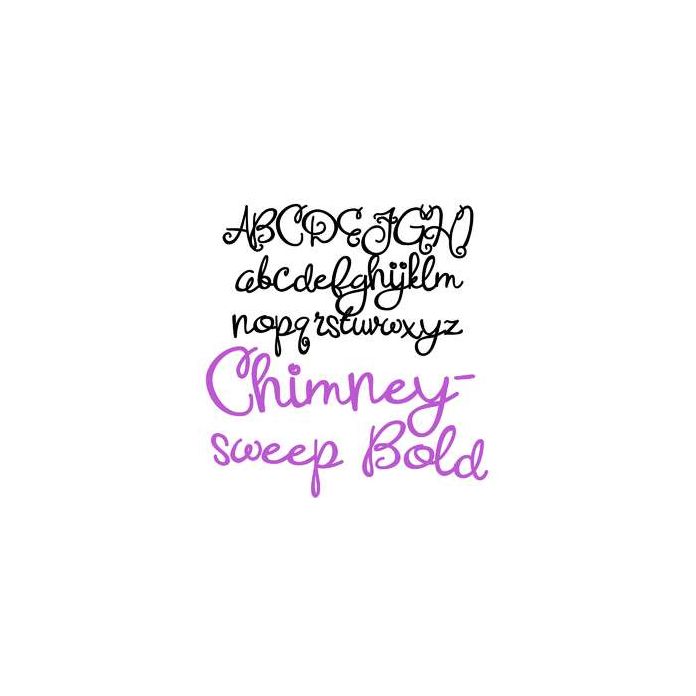 ABCDEFGHI
abcdefghijklm
nopqrstuvwxyz
Chimney-
sweep Bold